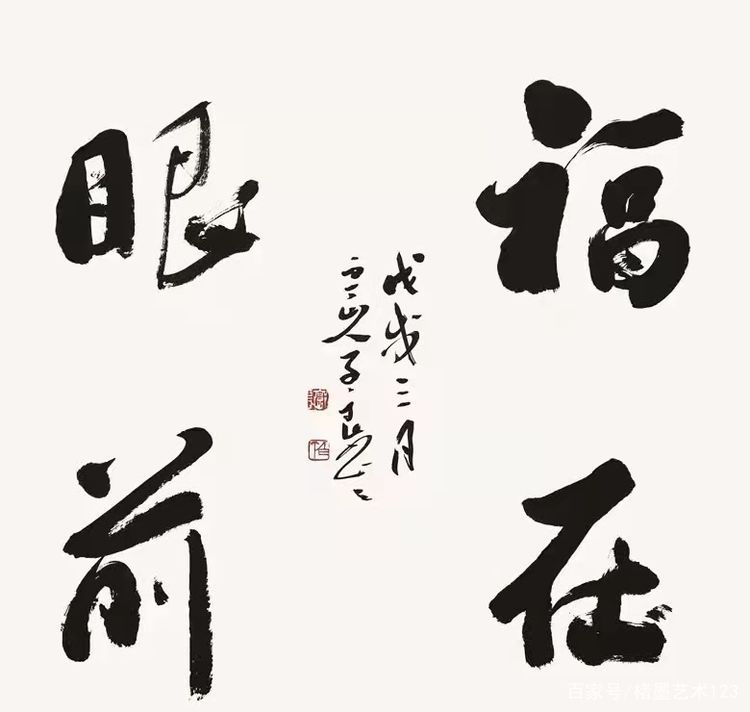 福在
眼前
戊戌三月
百家号/楮墨艺术123